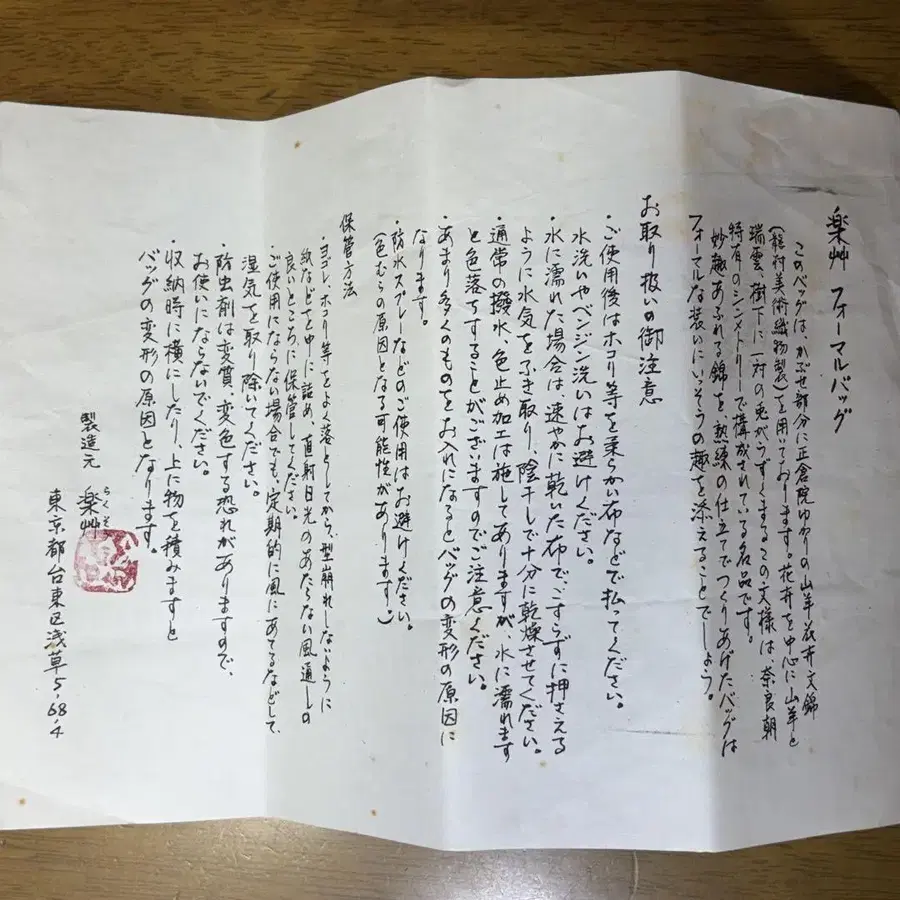 楽艸 フォーマルバッグ
このバッグは、かぶせ部分に正倉院ゆかりの山羊花卉文錦
(龍村美術織物製)を用いております。花卉を中心に山羊と
瑞雲、樹下に一対の兎がうずくまるこの文様は、奈良朝
特有のシンメトリーで構成されている名品です。
妙趣あふれる錦を、熟練の仕立てでつくりあげたバッグは
フォーマルな装いにいっそうの趣を添えることでしょう。
お取り扱いの御注意
・ご使用後はホコリ等を柔らかい布などで払ってください。
水洗いやベンジン洗いはお避けください。
・水に濡れた場合は、速やかに乾いた布でこすらずに押さえる
ように水気をふき取り、陰干しで十分に乾燥させてください。
・通常の撥水、色止め加工は施してありますが、水に濡れます
と色落ちすることがございますのでご注意ください。
・あまり多くのものをお入れになるとバッグの変形の原因に
なります。
・防水スプレーなどのご使用はお避けください。
(色むらの原因となる可能性があります。)
保管方法
・ヨゴレ、ホコリ等をよく落としてから、型崩れしないように
紙などを中に詰め、直射日光のあたらない風通しの
良いところに保管してください。
・ご使用にならない場合でも、定期的に風にあてるなどして、
湿気を取り除いてください。
・防虫剤は変質、変色する恐れがありますので、
お使いにならないでください。
・収納時に横にしたり、上に物を積みますと
バッグの変形の原因となります。
製造元 楽艸
らくそう
東京都台東区浅草5.68.4